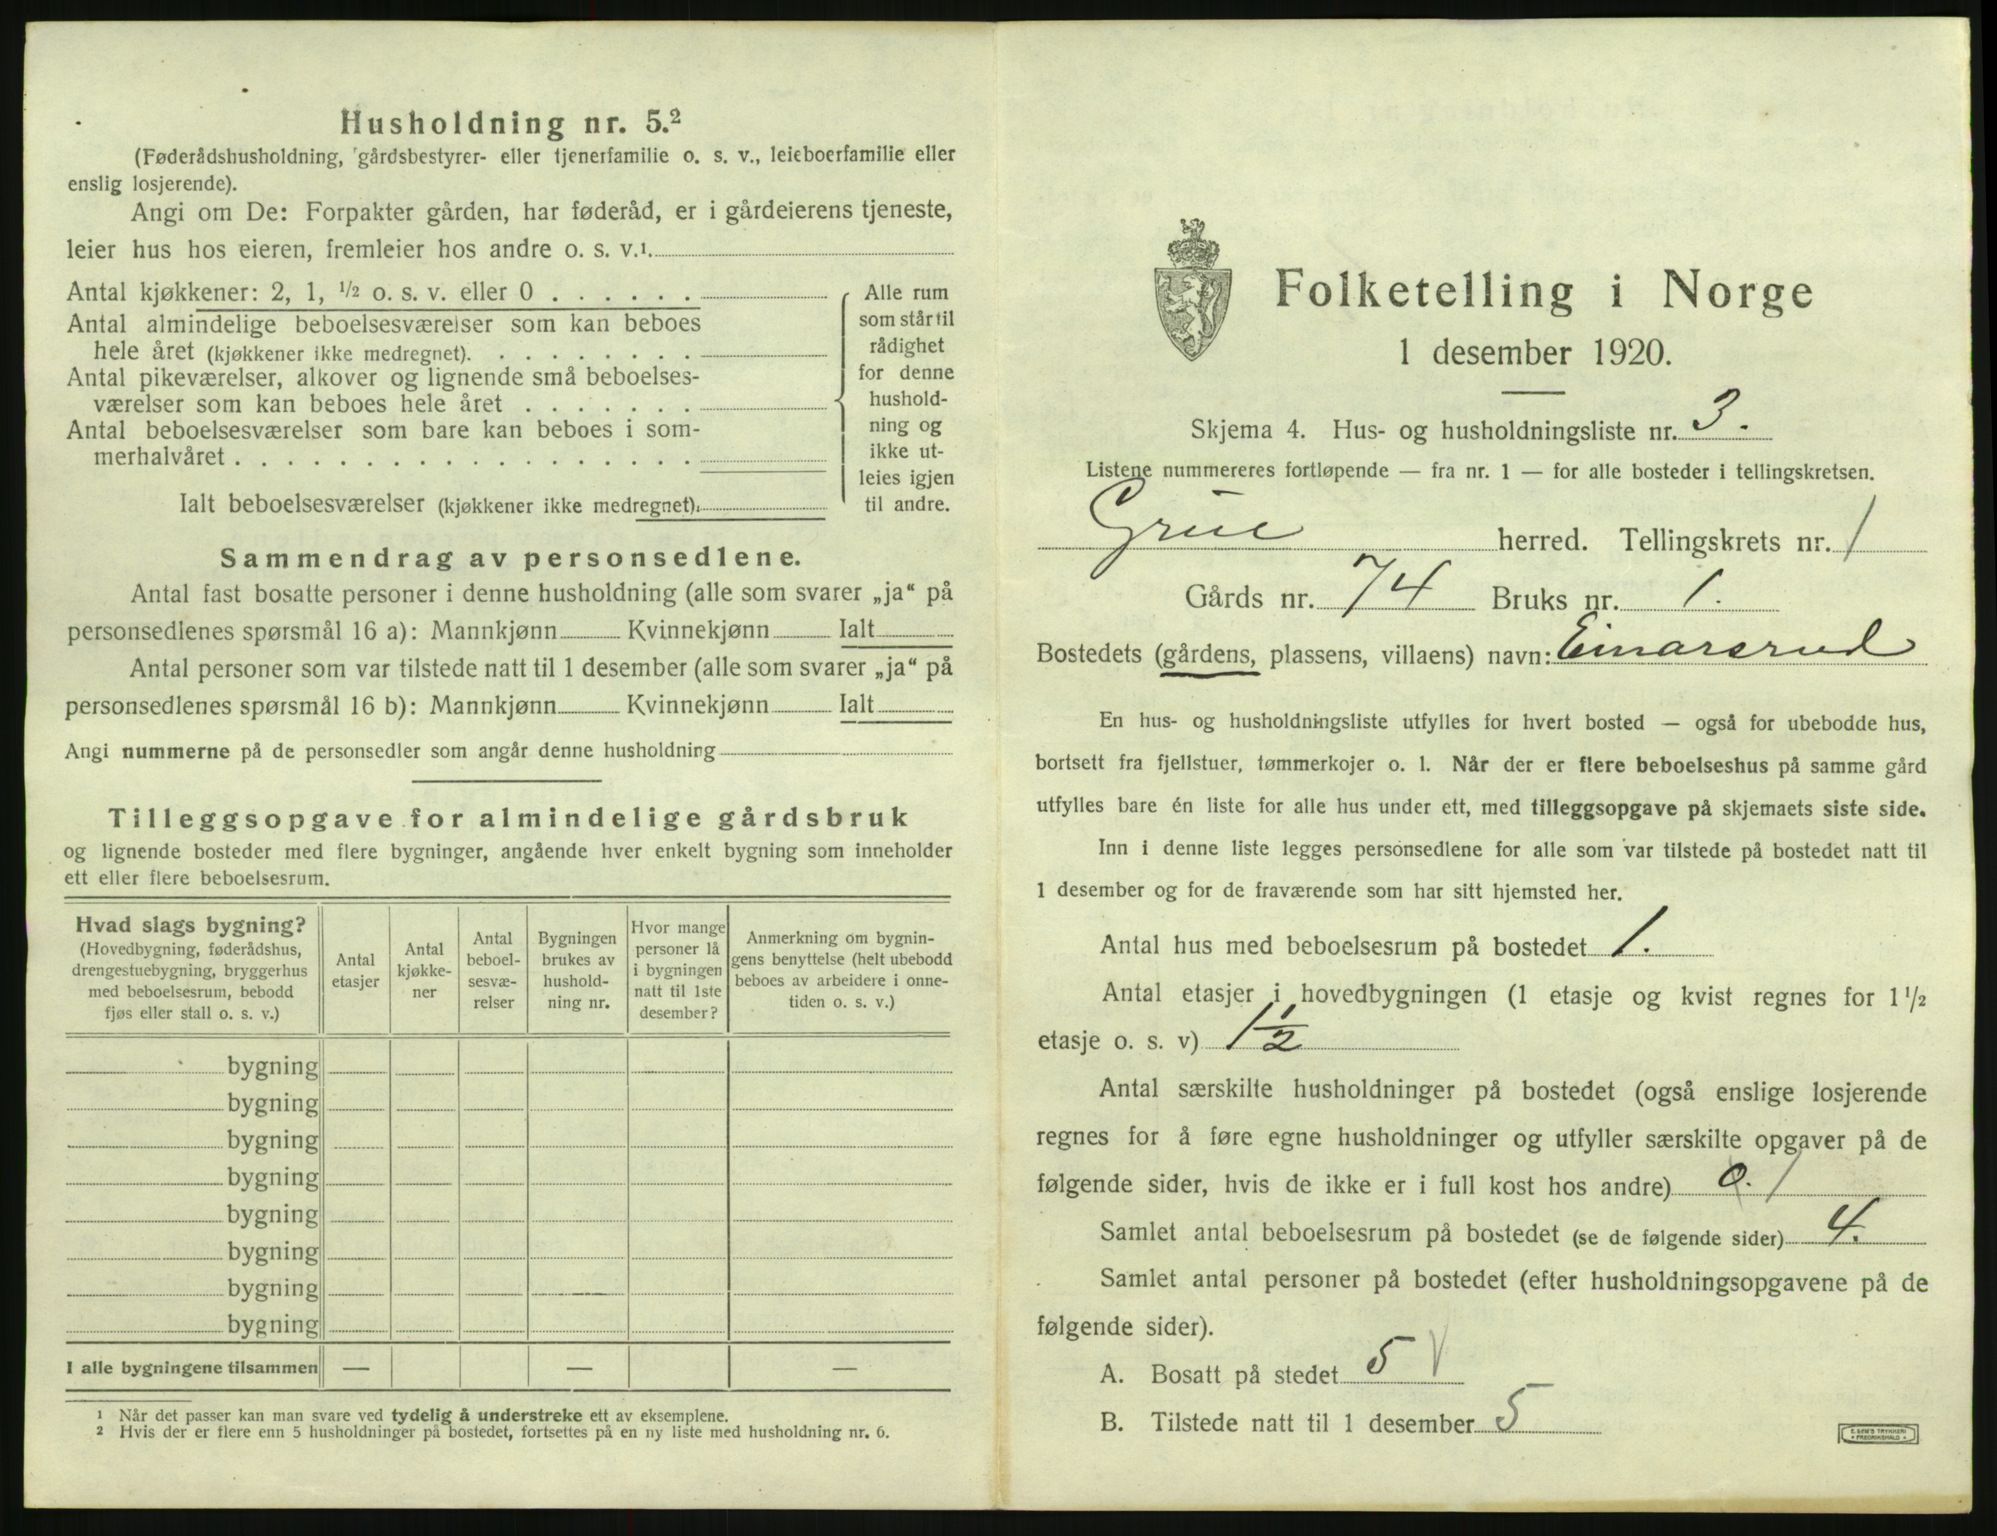 Husholdning nr. 5.²
(Føderådshusholdning, gårdsbestyrer- eller tjenerfamilie o. s. v., leieboerfamilie eller
enslig losjerende).
Angi om De: Forpakter gården, har føderåd, er i gårdeierens tjeneste,
leier hus hos eieren, fremleier hos andre o. s. v.¹
Antal kjøkkener: 2, 1, ½ o. s. v. eller 0 . . . . . .
Antal almindelige beboelsesværelser som kan beboes
hele året (kjøkkener ikke medregnet). . . . . . . . .
Antal pikeværelser, alkover og lignende små beboelses-
værelser som kan beboes hele året . . . . . . .
Antal beboelsesværelser som bare kan beboes i som-
merhalvåret . . . . . . . . . . . . . . . . .
Ialt beboelsesværelser (kjøkkener ikke medregnet).
Alle rum
som står til
rådighet
for denne
hushold-
ning og
ikke ut-
leies igjen
til andre.
Sammendrag av personsedlene.
Antal fast bosatte personer i denne husholdning (alle som svarer „ja“ på
personsedlenes spørsmål 16 a): Mannkjønn Kvinnekjønn Ialt
Antal personer som var tilstede natt til 1 desember (alle som svarer „ja“ på
personsedlenes spørsmål 16 b): Mannkjønn Kvinnekjønn Ialt
Angi nummerne på de personsedler som angår denne husholdning
Tilleggsopgave for almindelige gårdsbruk
og lignende bosteder med flere bygninger, angående hver enkelt bygning som inneholder
ett eller flere beboelsesrum.
Hvad slags bygning?
(Hovedbygning, føderådshus,
drengestuebygning, bryggerhus
med beboelsesrum, bebodd
fjøs eller stall o. s. v.)
Antal
etasjer
Antal
kjøkke-
ner
Antal
beboel-
sesvæ-
relser
Bygningen
brukes av
hushold-
ning nr.
Hvor mange
personer lå
i bygningen
natt til 1ste
desember?
Anmerkning om bygnin-
gens benyttelse (helt ubebodd
beboes av arbeidere i onne-
tiden o. s. v.)
bygning
bygning
bygning
bygning
bygning
bygning
bygning
bygning
I alle bygningene tilsammen — — —
¹ Når det passer kan man svare ved tydelig å understreke ett av eksemplene.
² Hvis der er flere enn 5 husholdninger på bostedet, fortsettes på en ny liste med husholdning nr. 6.
Folketelling i Norge
1 desember 1920.
Skjema 4. Hus- og husholdningsliste nr. 3.
Listene nummereres fortløpende — fra nr. 1 — for alle bosteder i tellingskretsen.
Grue herred. Tellingskrets nr. 1
Gårds nr. 74 Bruks nr. 1.
Bostedets (gårdens, plassens, villaens) navn: Einarsrud
En hus- og husholdningsliste utfylles for hvert bosted — også for ubebodde hus,
bortsett fra fjellstuer, tømmerkojer o. l. Når der er flere beboelseshus på samme gård
utfylles bare én liste for alle hus under ett, med tilleggsopgave på skjemaets siste side.
Inn i denne liste legges personsedlene for alle som var tilstede på bostedet natt til
1 desember og for de fraværende som har sitt hjemsted her.
Antal hus med beboelsesrum på bostedet 1.
Antal etasjer i hovedbygningen (1 etasje og kvist regnes for 1 ½
etasje o. s. v) 1½
Antal særskilte husholdninger på bostedet (også enslige losjerende
regnes for å føre egne husholdninger og utfyller særskilte opgaver på de
følgende sider, hvis de ikke er i full kost hos andre) 0. 1
Samlet antal beboelsesrum på bostedet (se de følgende sider) 4.
Samlet antal personer på bostedet (efter husholdningsopgavene på de
følgende sider).
A. Bosatt på stedet 5
B. Tilstede natt til 1 desember 5
E. SEM'S TRYKKERI
FREDRIKSHALD